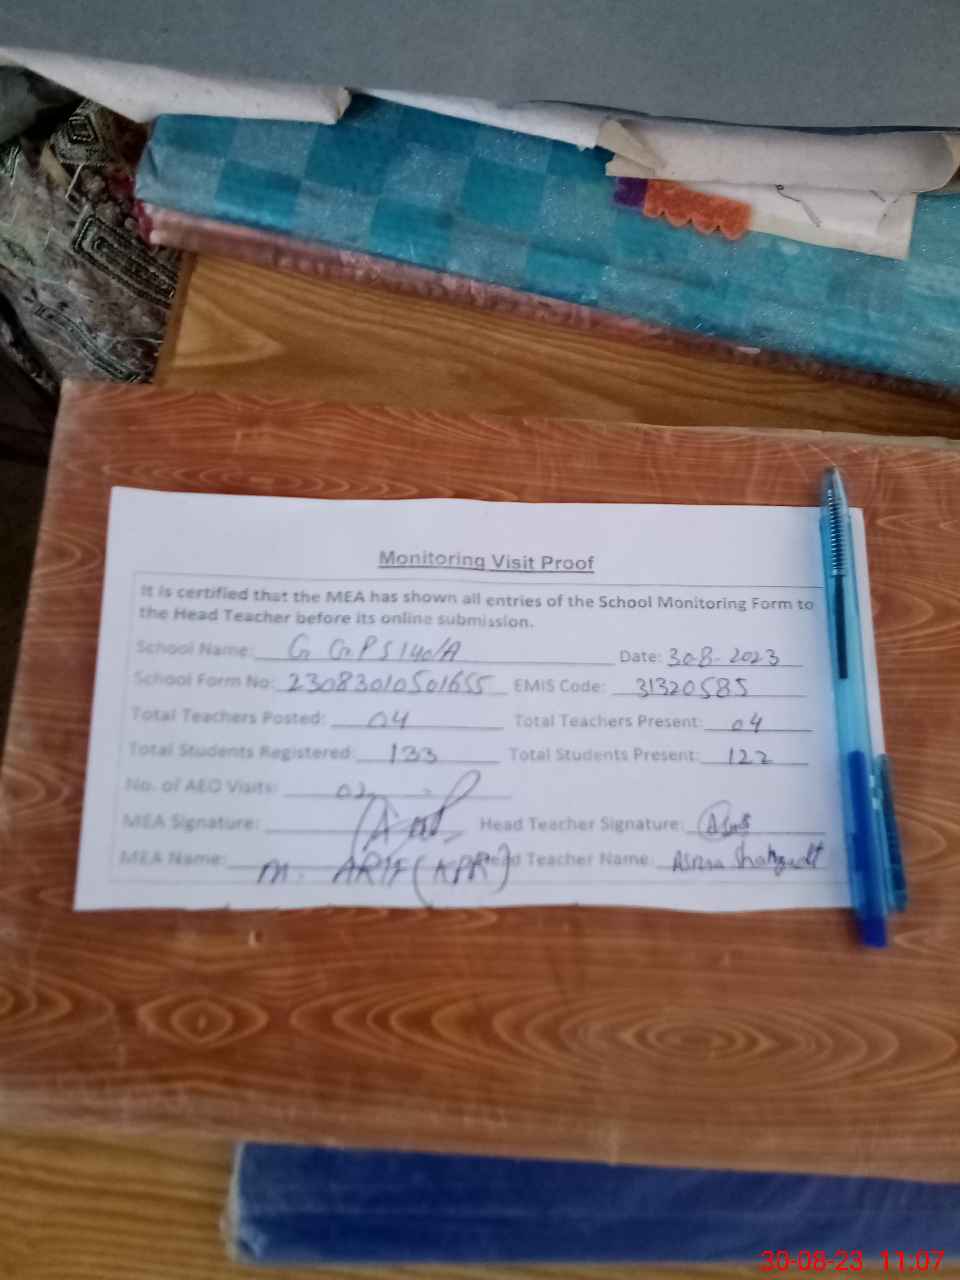 Monitoring Visit Proof
It is certified that the MEA has shown all entries of the School Monitoring Form to
the Head Teacher before its online submission.
School Name: G GPS 140/A Date: 30-8-2023
School Form No: 23083010501655 EMIS Code: 31320585
Total Teachers Posted: 04 Total Teachers Present: 04
Total Students Registered: 133 Total Students Present: 122
No. of AEO Visits: 02
MEA Signature: Head Teacher Signature:
MEA Name: M. ARIF (KPR) Head Teacher Name: Asma
30-08-23 11:07